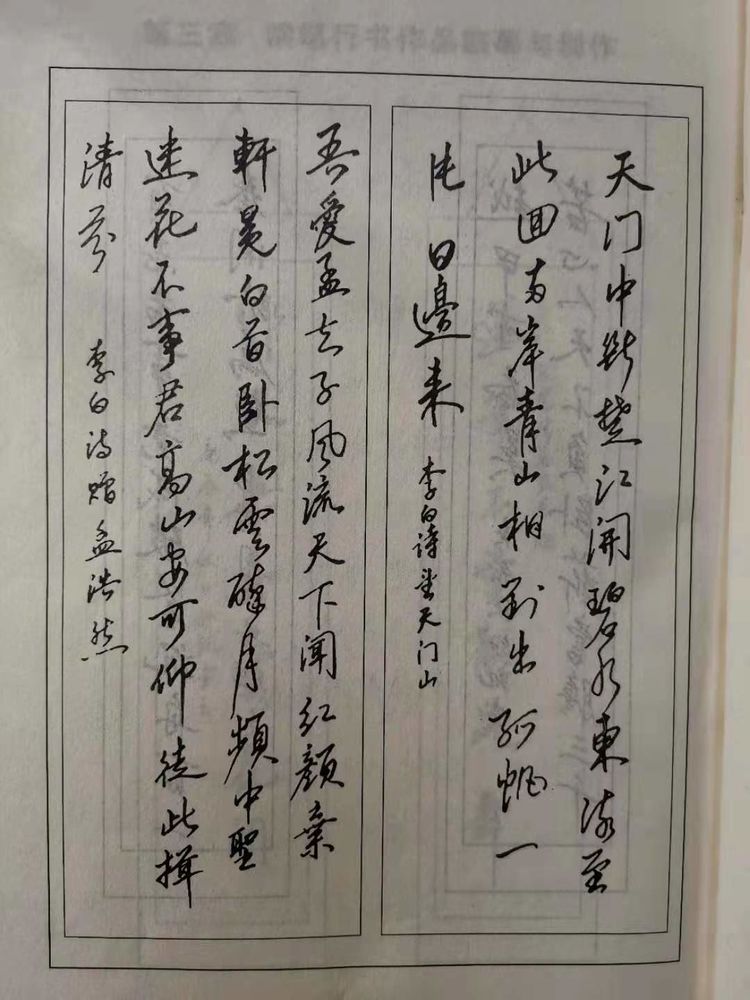 天门中断楚江開碧水東流至
此回两岸青山相对出孤帆一
片日邊来
李白诗望天门山
吾愛孟夫子风流天下闻红颜棄
軒冕白首卧松雲醉月频中聖
迷花不事君高山安可仰徒此揖
清芬
李白诗赠孟浩然